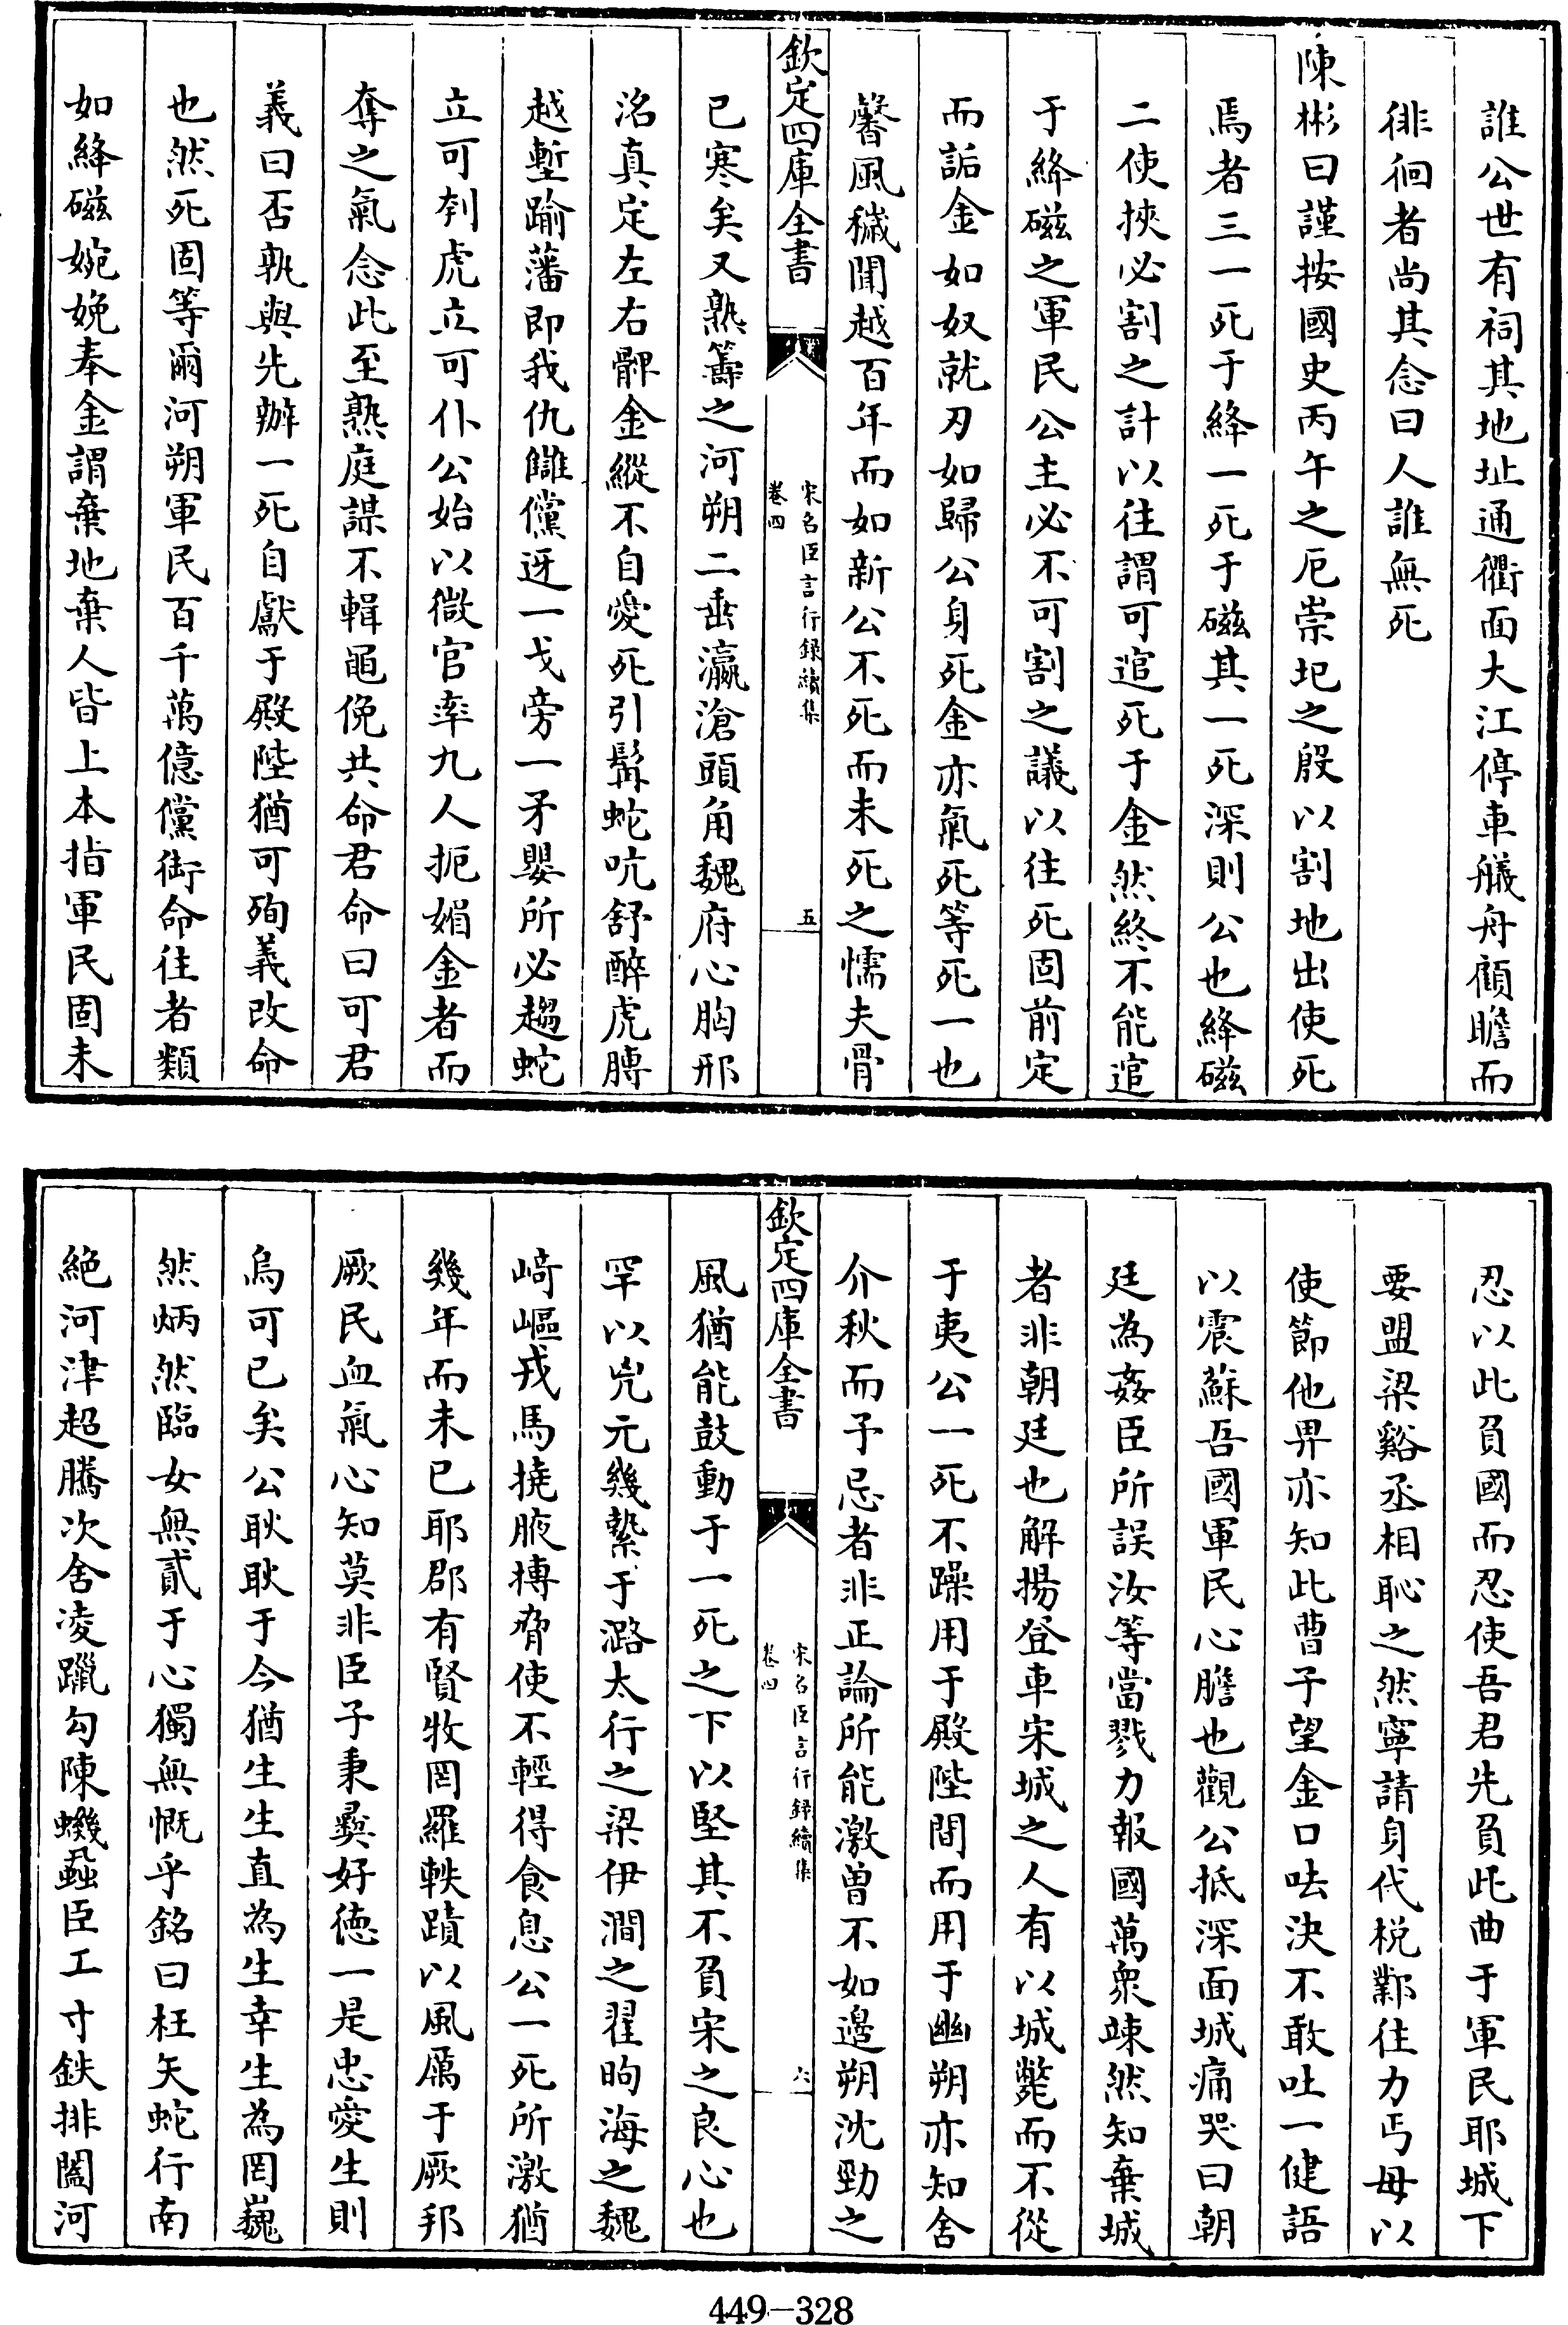 誰公世有祠其地址通衢面大江停車艤舟顧瞻而
徘徊者尚其念曰人誰無死
陳彬曰謹按國史丙午之厄崇圯之殷以割地出使死
焉者三一死于絳一死于磁其一死深則公也絳磁
二使挾必割之計以往謂可逭死于金然終不能逭
于絳磁之軍民公主必不可割之議以往死固前定
而詬金如奴就刃如歸公身死金亦氣死等死一也
馨風穢聞越百年而如新公不死而未死之懦夫骨
欽定四庫全書
宋名臣言行録續集
卷四
五
已寒矣又熟籌之河朔二垂瀛滄頭角魏府心胸邢
洺真定左右髀金縱不自愛死引髯蛇吭舒醉虎膊
越塹踰藩即我仇讎儻迓一戈旁一矛嬰所必趨蛇
立可刳虎立可仆公始以微官率九人扼媚金者而
奪之氣念此至熟庭謀不輯黽俛共命君命曰可君
義曰否孰與先辦一死自獻于殿陛猶可殉義改命
也然死固等爾河朔軍民百千萬億儻銜命往者類
如絳磁婉娩奉金謂棄地棄人皆上本指軍民固未
忍以此負國而忍使吾君先負此曲于軍民耶城下
要盟梁谿丞相恥之然寧請身代棁鄴往力丐毋以
使節他畀亦知此曹子望金口呿決不敢吐一健語
以震蘇吾國軍民心膽也觀公抵深面城痛哭曰朝
廷為姦臣所誤汝等當戮力報國萬衆竦然知棄城
者非朝廷也解揚登車宋城之人有以城斃而不從
于夷公一死不躁用于殿陛間而用于幽朔亦知舍
介秋而予忌者非正論所能激曾不如邊朔沈勁之
欽定四庫全書
宋名臣言行録續集
卷四
六
風猶能鼓動于一死之下以堅其不負宋之良心也
罕以兇元幾縶于潞太行之梁伊澗之翟昫海之魏
崎嶇戎馬撓腋搏脅使不輕得食息公一死所激猶
幾年而未已耶郡有賢牧罔羅軼蹟以風厲于厥邦
厥民血氣心知莫非臣子秉彛好徳一是忠愛生則
烏可已矣公耿耿于今猶生生直為生幸生為罔巍
然炳然臨女無貳于心獨無慨乎銘曰枉矢蛇行南
絶河津超騰次舍凌躐勾陳蟣蝨臣工寸鈇排闔河
449-328